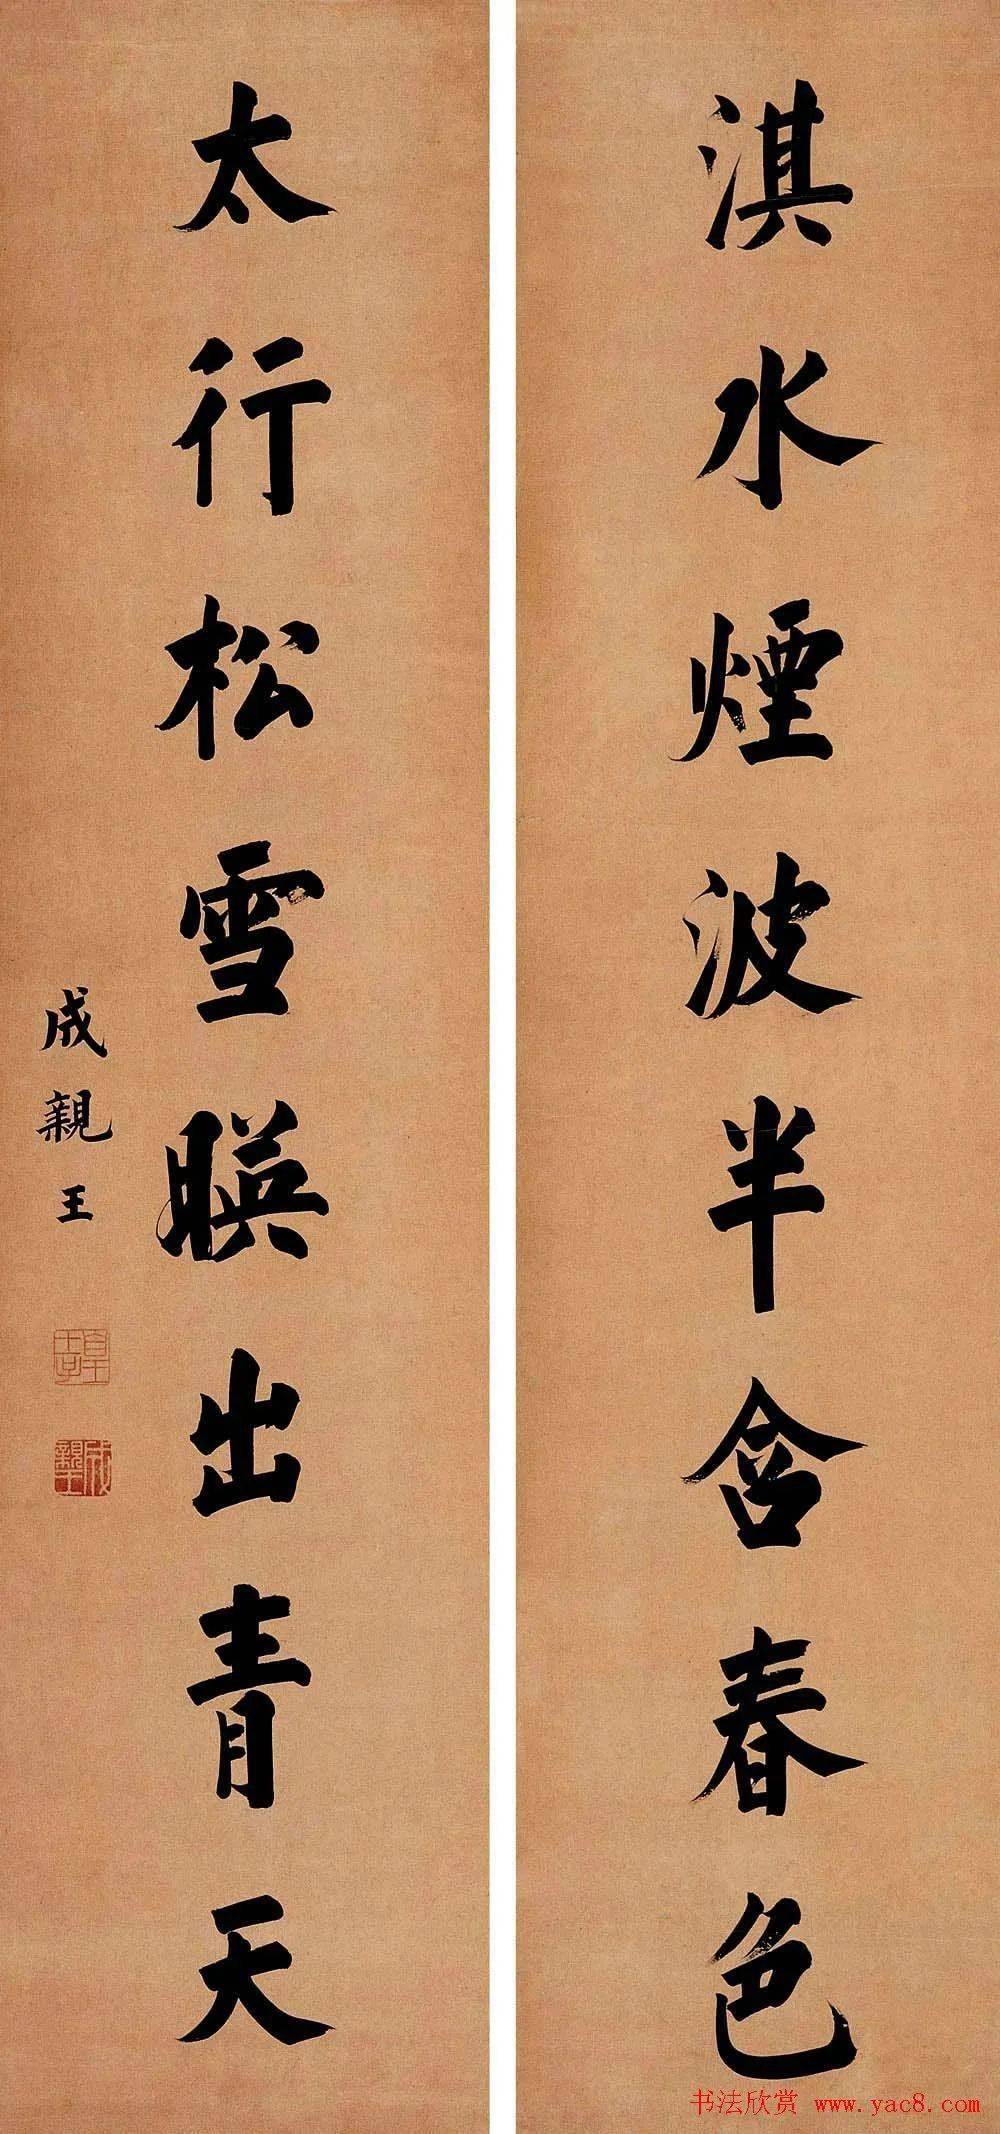 淇水煙波半含春色
太行松雪暎出青天
成親王
皇十一子
成親王
书法欣赏 www.yac8.com